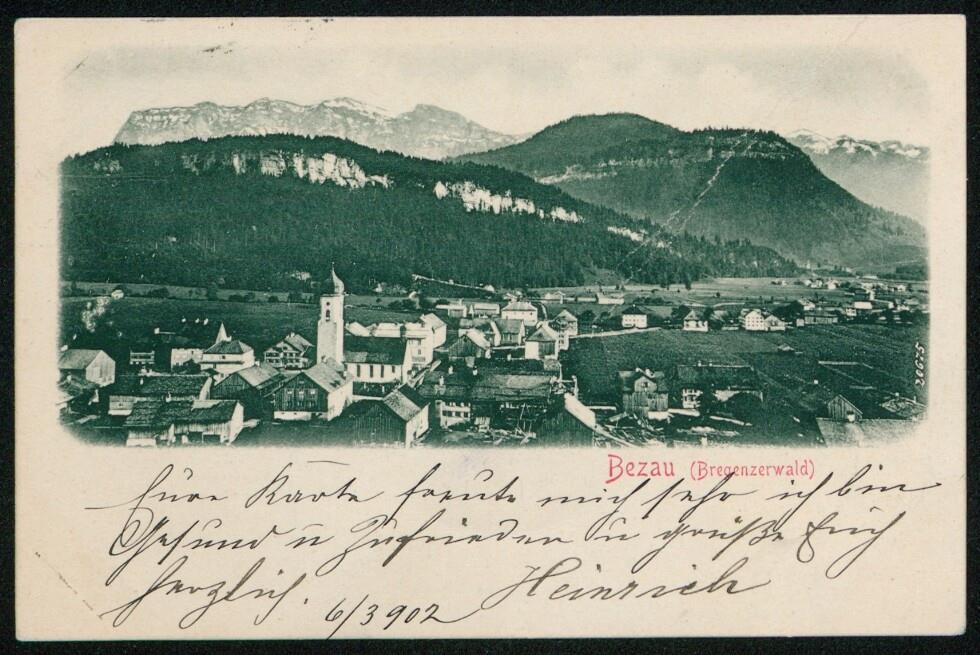 26675
Bezau (Bregenzerwald)
Eure Karte freute mich sehr ich bin
Gesund u Zufrieden u grüße Euch
herzlich. Heinrich
6/3 902